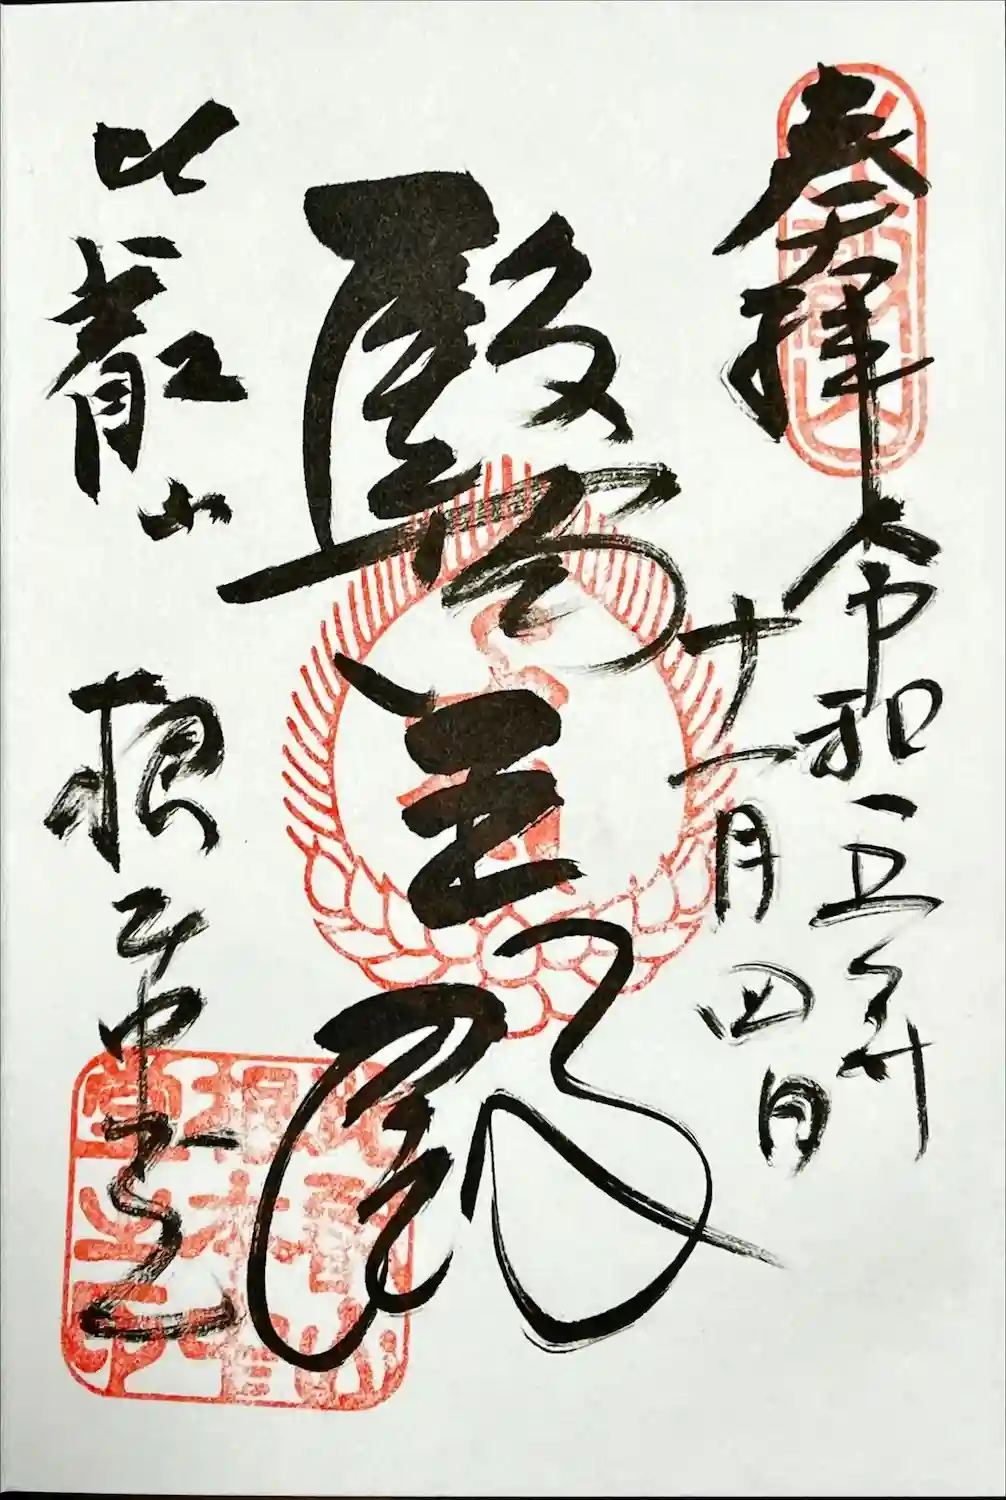 奉拝 令和五年
十一月四日
醫王殿
比叡山 根本中堂